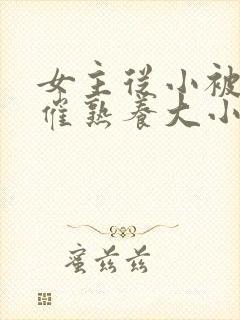 女主从小被
催熟养大小
蜜兹兹